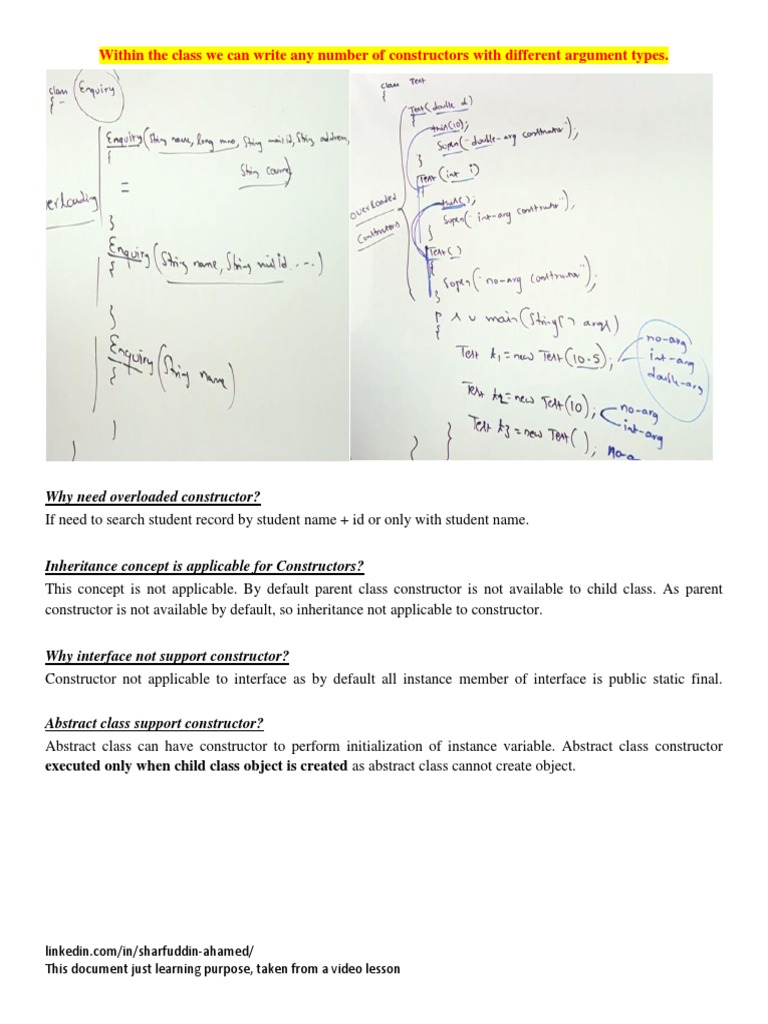 Within the class we can write any number of constructors with different argument types.
class Enquiry
{ -
Enquiry(String name, long mno, String mailid, String address,
String course)
{
=
erloading
}
Enquiry(String name, String mailid . . - . )
{
}
Enquiry(String name)
{
}
}
class Test
{
Test(double d)
{
this(10);
Sopln("double-arg constructor");
}
Test(int i)
{
this();
Sopln("int-arg constructor");
}
overloaded
Constructors
Test()
{
Sopln("no-arg constructor");
}
p s v main(String[] args)
{
Test t1 = new Test(10.5);
no-arg
int-arg
double-arg
Test t2 = new Test(10);
no-arg
int-arg
Test t3 = new Test( );
no-a
} }
Why need overloaded constructor?
If need to search student record by student name + id or only with student name.
Inheritance concept is applicable for Constructors?
This concept is not applicable. By default parent class constructor is not available to child class. As parent
constructor is not available by default, so inheritance not applicable to constructor.
Why interface not support constructor?
Constructor not applicable to interface as by default all instance member of interface is public static final.
Abstract class support constructor?
Abstract class can have constructor to perform initialization of instance variable. Abstract class constructor
executed only when child class object is created as abstract class cannot create object.
linkedin.com/in/sharfuddin-ahamed/
This document just learning purpose, taken from a video lesson